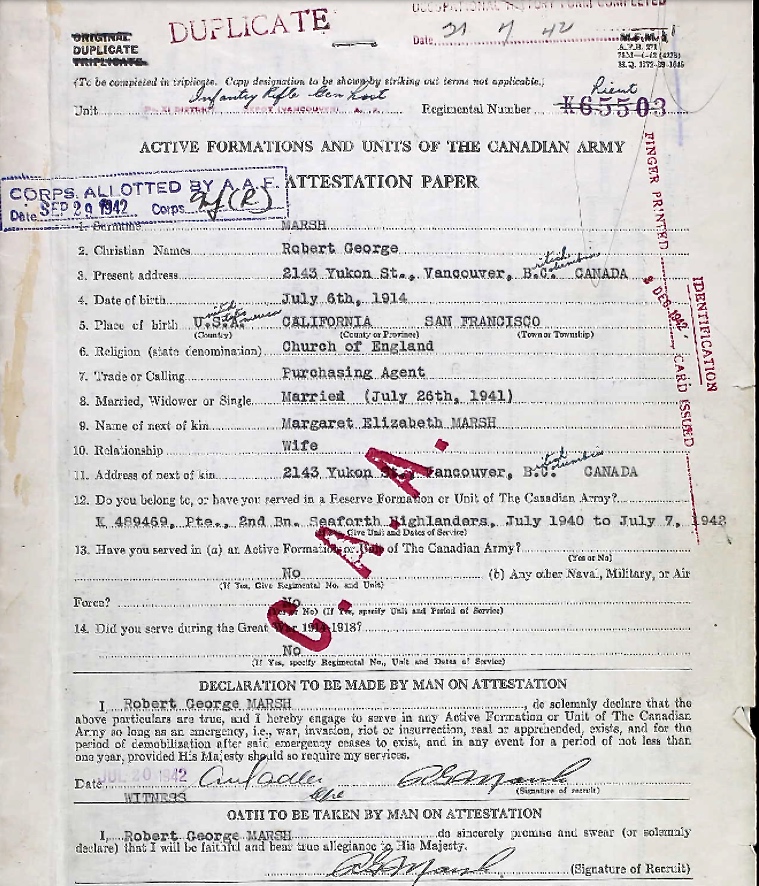 DUPLICATE
OCCUPATIONAL HISTORY FORM COMPLETED
Date 31 7 42
ORIGINAL
DUPLICATE
TRIPLICATE
M.F.M. 2
(To be completed in triplicate. Copy designation to be shown by striking out terms not applicable.)
Infantry Rifle
Unit Regimental Number K65503
ACTIVE FORMATIONS AND UNITS OF THE CANADIAN ARMY
ATTESTATION PAPER
CORPS ALLOTTED BY A.A.F.
Date SEP 20 1942 Corps Inf (R)
1. Surname MARSH
2. Christian Names Robert George
3. Present address 2143 Yukon St., Vancouver, B.C. CANADA
4. Date of birth July 6th, 1914
5. Place of birth U.S.A. CALIFORNIA SAN FRANCISCO
(Country) (County or Province) (Town or Township)
6. Religion (state denomination) Church of England
7. Trade or Calling Purchasing Agent
8. Married, Widower or Single Married (July 26th, 1941)
9. Name of next of kin Margaret Elizabeth MARSH
10. Relationship Wife
11. Address of next of kin 2143 Yukon St., Vancouver, B.C. CANADA
12. Do you belong to, or have you served in a Reserve Formation or Unit of The Canadian Army?
K 489469, Pte., 2nd Bn. Seaforth Highlanders, July 1940 to July 7, 1942
(Give Unit and Dates of Service)
13. Have you served in (a) an Active Formation or Unit of The Canadian Army?
(Yes or No)
No (b) Any other Naval, Military, or Air
(If Yes, Give Regimental No. and Unit)
Force? No
(Yes or No) (If Yes, specify Unit and Period of Service)
14. Did you serve during the Great War 1914-1918?
No
(If Yes, specify Regimental No., Unit and Dates of Service)
C.A.A.
FINGER PRINTED
DEC 1942
IDENTIFICATION
CARD ISSUED
DECLARATION TO BE MADE BY MAN ON ATTESTATION
I, Robert George MARSH, do solemnly declare that the
above particulars are true, and I hereby engage to serve in any Active Formation or Unit of The Canadian
Army so long as an emergency, i.e., war, invasion, riot or insurrection, real or apprehended, exists, and for the
period of demobilization after said emergency ceases to exist, and in any event for a period of not less than
one year, provided His Majesty should so require my services.
Date JUL 20 1942 RG Marsh
WITNESS (Signature of recruit)
OATH TO BE TAKEN BY MAN ON ATTESTATION
I, Robert George MARSH do sincerely promise and swear (or solemnly
declare) that I will be faithful and bear true allegiance to His Majesty.
RG Marsh (Signature of Recruit)